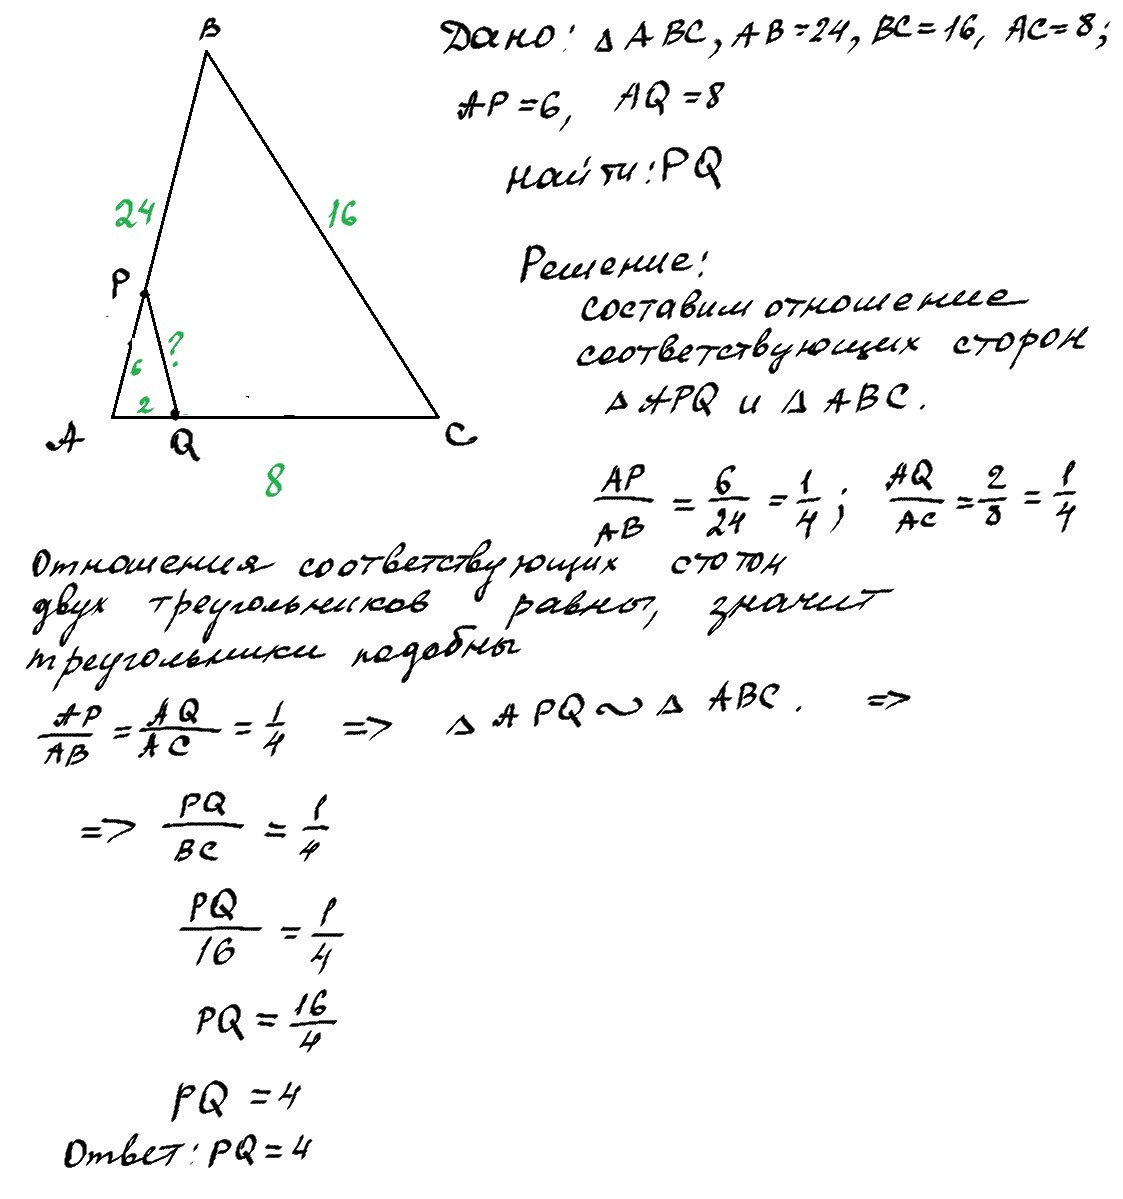 B
Дано: △ ABC, AB=24, BC=16, AC=8;
AP=6, AQ=8
найти: PQ
24
16
P
6
?
2
A
Q
C
8
Решение:
составим отношение
соответствующих сторон
△ APQ и △ ABC.
AP/AB = 6/24 = 1/4; AQ/AC = 2/8 = 1/4
Отношения соответствующих стотон
двух треугольников равны, значит
треугольники подобны
AP/AB = AQ/AC = 1/4 => △ APQ ~ △ ABC. =>
=> PQ/BC = 1/4
PQ/16 = 1/4
PQ = 16/4
PQ = 4
Ответ: PQ = 4